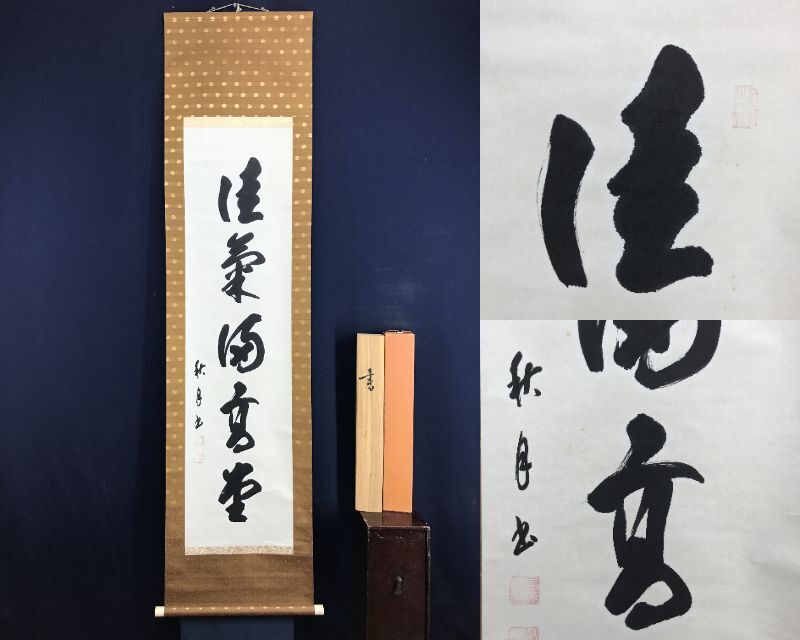 佳氣満高堂
秋月書
書
佳
満高
秋月書